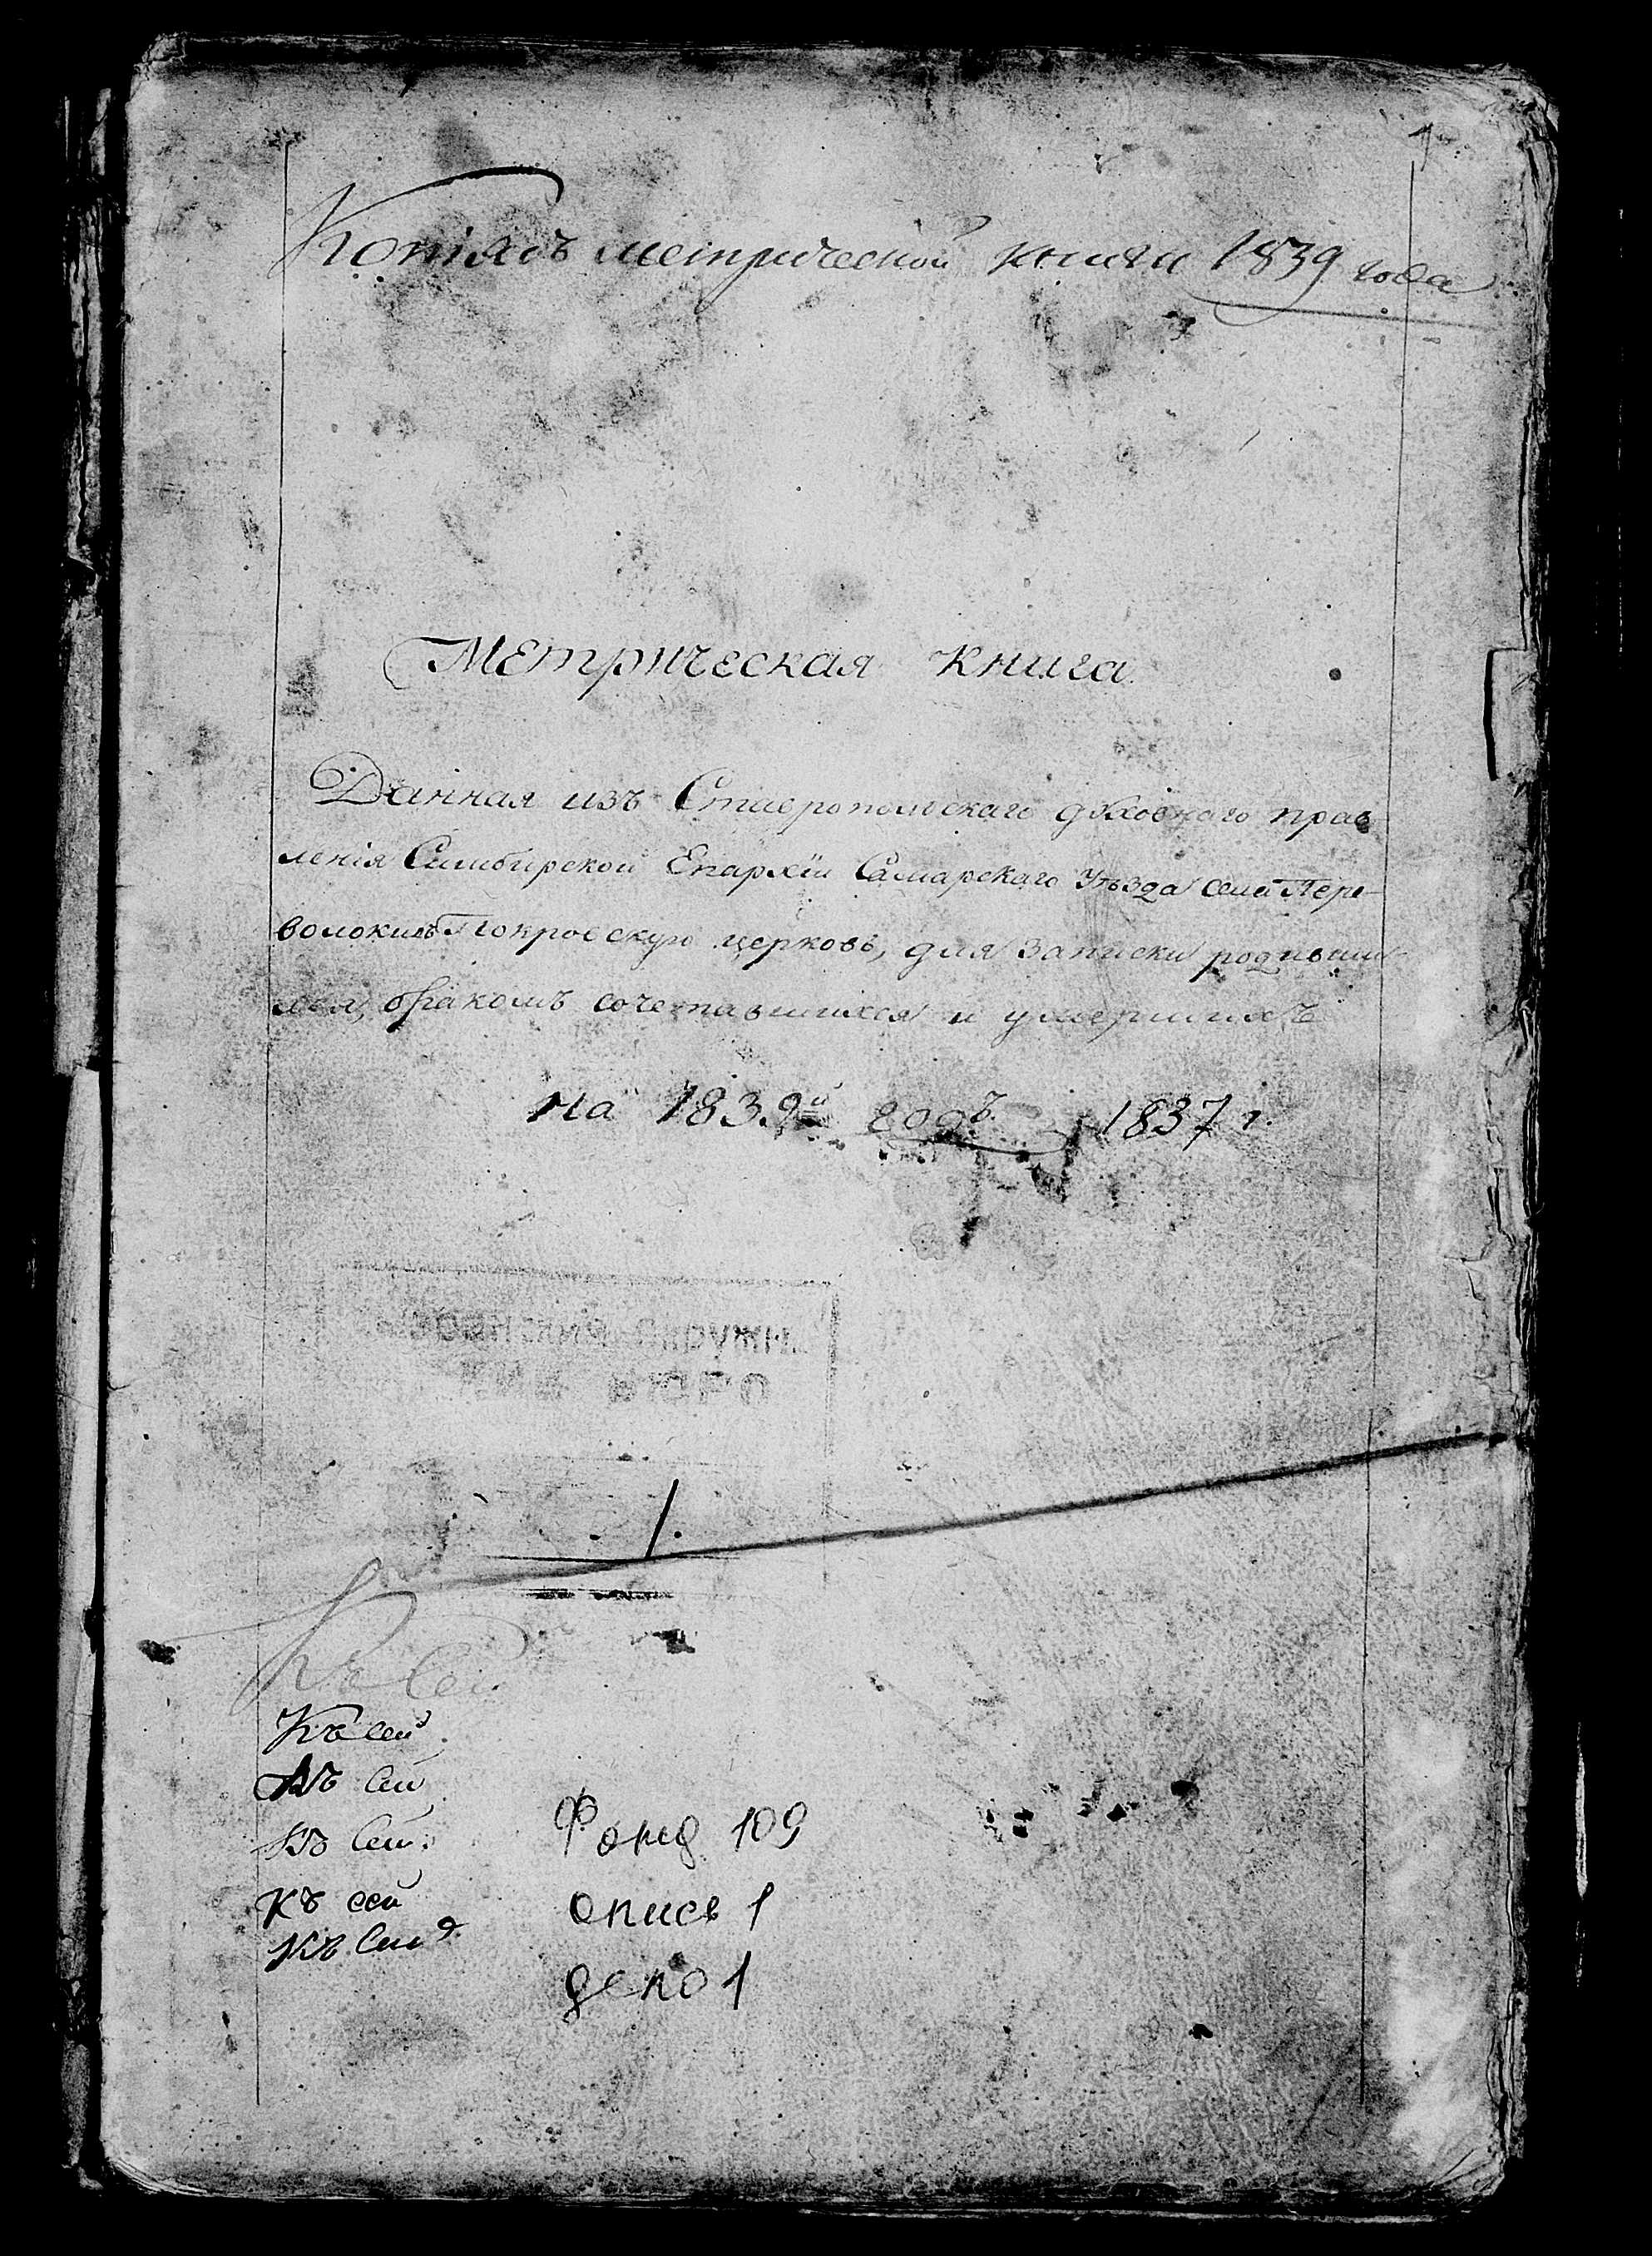 Копiя съ метрической книги 1839 года
Метрическая книга
Данная изъ Ставропольскаго духовнаго прав
ленiя Симбирской Епархiи Самарскаго Уѣзда села Пере-
волокиъ Покровскую церковь, для записки родивши
хся, бракомъ сочетавшихся и умершихъ
на 1839й годъ 1837 г.
1.
Къ сей
Къ сей
Къ сей
Къ сей
Къ сей
Къ сей
Фонд 109
опись 1
дело 1